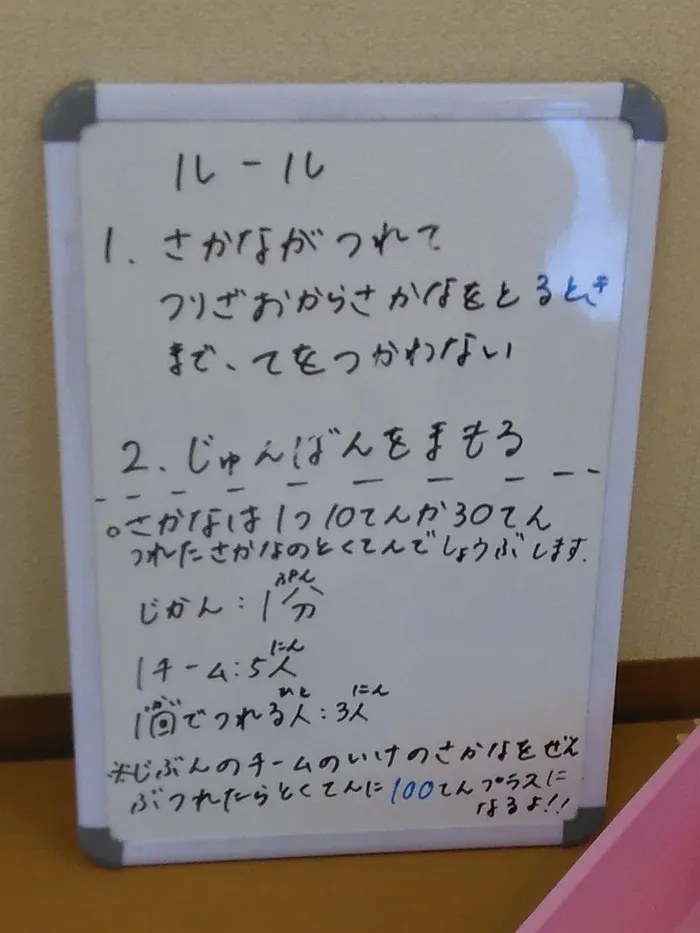 ルール
1. さかながつれて
つりざおからさかなをとるとき
まで、てをつかわない
2. じゅんばんをまもる
。さかなは1つ10てんか30てん
つれたさかなのとくてんでしょうぶします.
ぷん
じかん：1分
にん
1チーム：5人
かい ひと にん
1回でつれる人：3人
※じぶんのチームのいけのさかなをぜん
ぶつれたらとくてんに100てんプラスに
なるよ!!